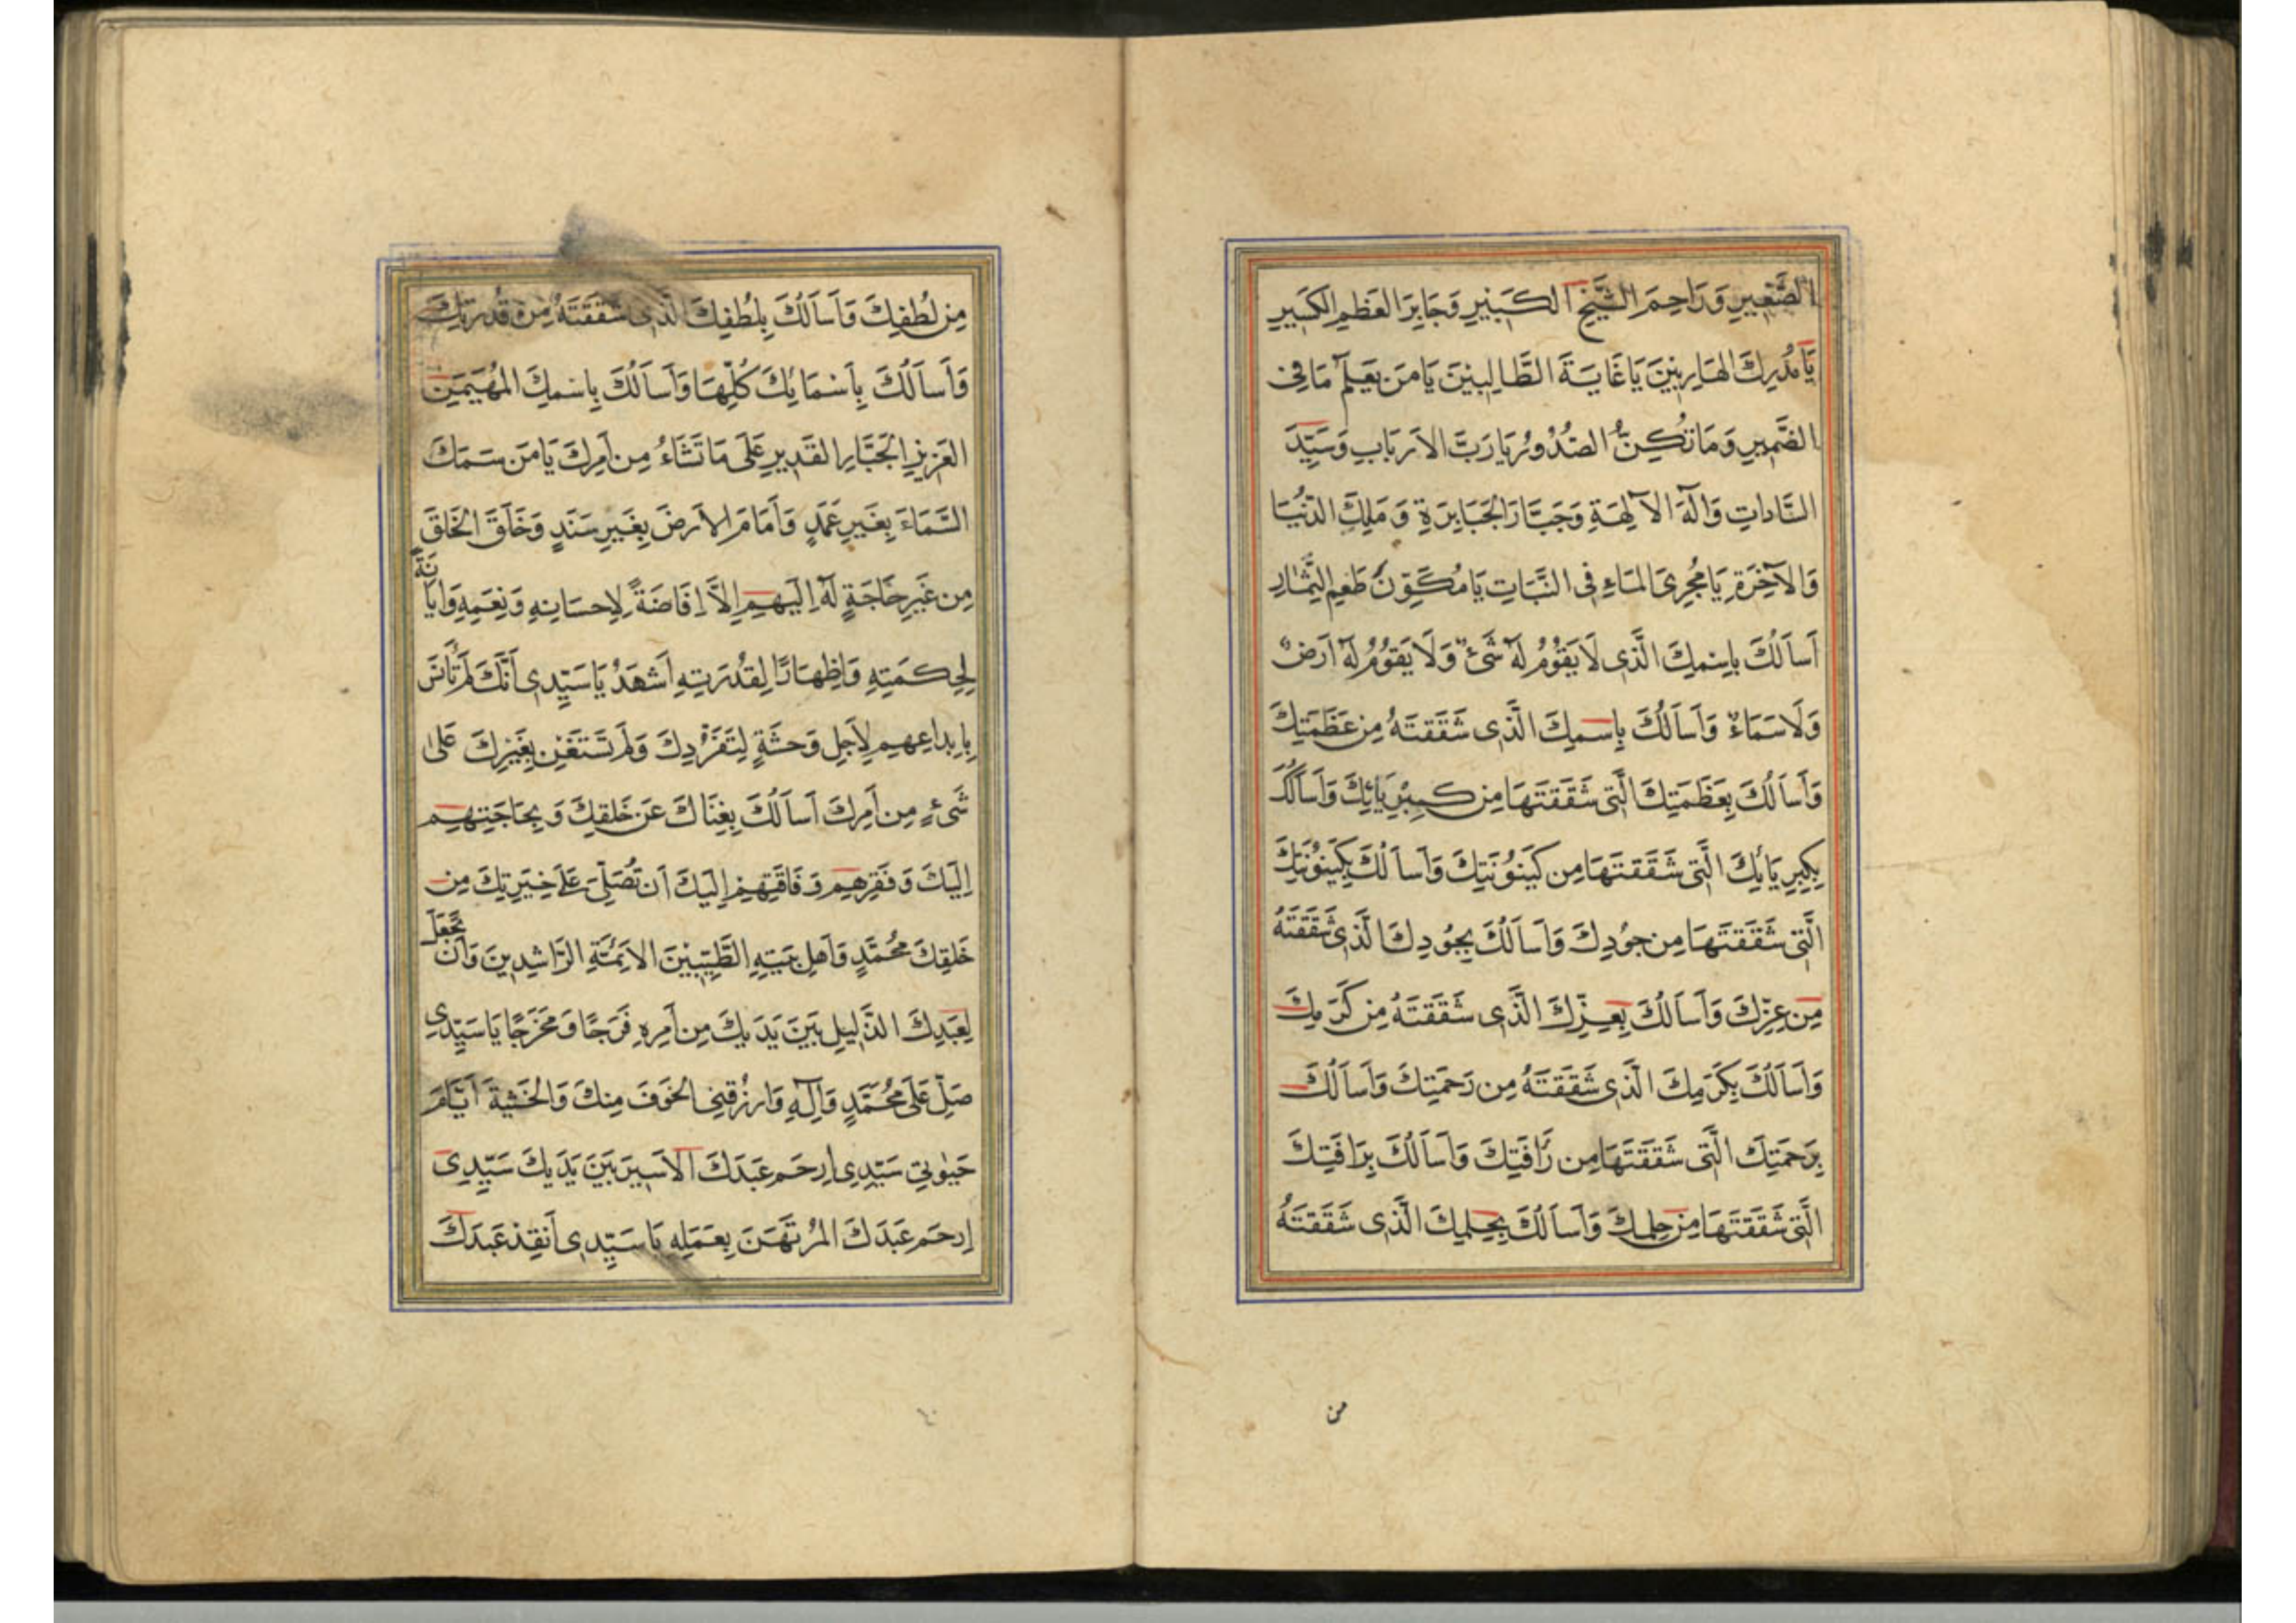 الصَّغِيرِ وَرَاحِمَ الشَّيْخِ الكَبِيرِ وَجَابِرَ العَظْمِ الكَسِيرِ
يَا مُدْرِكَ الهَارِبِينَ يَا غَايَةَ الطَّالِبِينَ يَا مَنْ يَعْلَمُ مَا فِي
الضَّمِيرِ وَمَا تُكِنُّ الصُّدُورُ يَا رَبَّ الاَرْبَابِ وَسَيِّدَ
السَّادَاتِ وَاِلٰهَ الآلِهَةِ وَجَبَّارَ الجَبَابِرَةِ وَمَلِكَ الدُّنْيَا
وَالآخِرَةِ يَا مُجْرِيَ المَاءِ فِي النَّبَاتِ يَا مُكَوِّنَ طَعْمِ الثِّمَارِ
اَسْاَلُكَ بِاسْمِكَ الَّذِي لَا يَقُومُ لَهُ شَيْءٌ وَلَا يَقُومُ لَهُ اَرْضٌ
وَلَا سَمَاءٌ وَاَسْاَلُكَ بِاسْمِكَ الَّذِي شَقَقْتَهُ مِنْ عَظَمَتِكَ
وَاَسْاَلُكَ بِعَظَمَتِكَ الَّتِي شَقَقْتَهَا مِنْ كِبْرِيَائِكَ وَاَسْاَلُكَ
بِكِبْرِيَائِكَ الَّتِي شَقَقْتَهَا مِنْ كَيْنُونَتِكَ وَاَسْاَلُكَ بِكَيْنُونَتِكَ
الَّتِي شَقَقْتَهَا مِنْ جُودِكَ وَاَسْاَلُكَ بِجُودِكَ الَّذِي شَقَقْتَهُ
مِنْ عِزِّكَ وَاَسْاَلُكَ بِعِزِّكَ الَّذِي شَقَقْتَهُ مِنْ كَرَمِكَ
وَاَسْاَلُكَ بِكَرَمِكَ الَّذِي شَقَقْتَهُ مِنْ رَحْمَتِكَ وَاَسْاَلُكَ
بِرَحْمَتِكَ الَّتِي شَقَقْتَهَا مِنْ رَأْفَتِكَ وَاَسْاَلُكَ بِرَأْفَتِكَ
الَّتِي شَقَقْتَهَا مِنْ حِلْمِكَ وَاَسْاَلُكَ بِحِلْمِكَ الَّذِي شَقَقْتَهُ
من
مِنْ لُطْفِكَ وَاَسْاَلُكَ بِلُطْفِكَ الَّذِي شَقَقْتَهُ مِنْ قُدْرَتِكَ
وَاَسْاَلُكَ بِاَسْمَائِكَ كُلِّهَا وَاَسْاَلُكَ بِاسْمِكَ المُهَيْمِنِ
العَزِيزِ الجَبَّارِ القَدِيرِ عَلَى مَا تَشَاءُ مِنْ اَمْرِكَ يَا مَنْ سَمَكَ
السَّمَاءَ بِغَيْرِ عَمَدٍ وَاَقَامَ الاَرْضَ بِغَيْرِ سَنَدٍ وَخَلَقَ الخَلْقَ
مِنْ غَيْرِ حَاجَةٍ لَهُ اِلَيْهِمْ اِلَّا اِفَاضَةً لِاِحْسَانِهِ وَنِعَمِهِ وَاِبَانَةً
لِحِكْمَتِهِ وَاِظْهَارًا لِقُدْرَتِهِ اَشْهَدُ يَا سَيِّدِي اَنَّكَ لَمْ تَأْنَسْ
بِاِبْدَاعِهِمْ لِاَجْلِ وَحْشَةٍ لِتَفَرُّدِكَ وَلَمْ تَسْتَعِنْ بِغَيْرِكَ عَلَى
شَيْءٍ مِنْ اَمْرِكَ اَسْاَلُكَ بِغِنَاكَ عَنْ خَلْقِكَ وَبِحَاجَتِهِمْ
اِلَيْكَ وَفَقْرِهِمْ وَفَاقَتِهِمْ اِلَيْكَ اَنْ تُصَلِّيَ عَلَى خِيَرَتِكَ مِنْ
خَلْقِكَ مُحَمَّدٍ وَاَهْلِ بَيْتِهِ الطَّيِّبِينَ الاَئِمَّةِ الرَّاشِدِينَ وَاَنْ تَجْعَلَ
لِعَبْدِكَ الذَّلِيلِ بَيْنَ يَدَيْكَ مِنْ اَمْرِهِ فَرَجًا وَمَخْرَجًا يَا سَيِّدِي
صَلِّ عَلَى مُحَمَّدٍ وَآلِهِ وَارْزُقْنِي الخَوْفَ مِنْكَ وَالخَشْيَةَ اَيَّامَ
حَيٰوتِي سَيِّدِي اِرْحَمْ عَبْدَكَ الاَسِيرَ بَيْنَ يَدَيْكَ سَيِّدِي
اِرْحَمْ عَبْدَكَ المُرْتَهَنَ بِعَمَلِهِ يَا سَيِّدِي اَنْقِذْ عَبْدَكَ